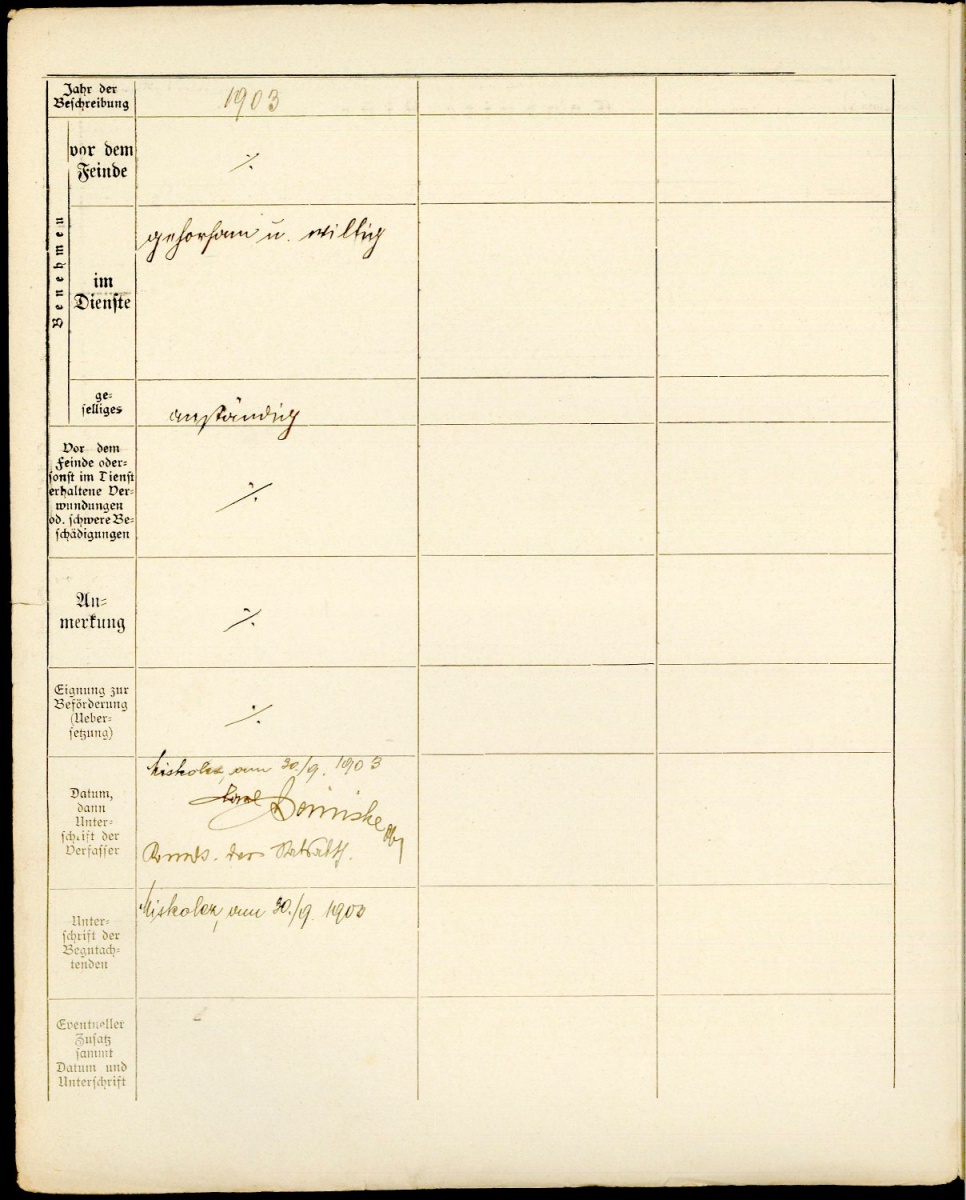 Jahr der
Beschreibung
1903
Benehmen
vor dem
Feinde
·/.
im
Dienste
gehorsam u. willig
ge-
selliges
anständig
Vor dem
Feinde oder-
sonst im Dienst
erhaltene Ver-
wundungen
od. schwere Be-
schädigungen
·/.
An-
merkung
·/.
Eignung zur
Beförderung
(Ueber-
setzung)
·/.
Datum,
dann
Unter-
schrift der
Verfasser
Miskolcz, am 30./9. 1903
der
Unter-
schrift der
Begutach-
tenden
Miskolcz, am 30./9. 1903
Eventueller
Zusatz
sammt
Datum und
Unterschrift